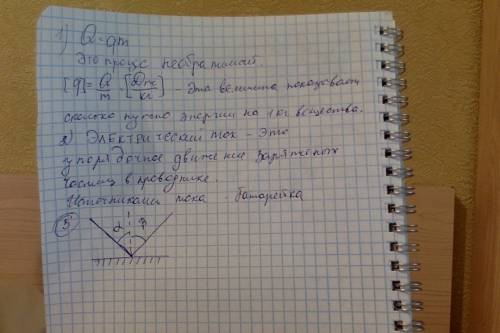 1) Q=qm
Это процес необратимый.
[q]=Q/m [Дж/кг] - Эта величина показывает
сколько нужно энергии на 1 кг вещества.
2) Электрический ток - Это
упорядочное движение заряженых
частиц в проводнике.
Источниками тока - батарейка
5 α